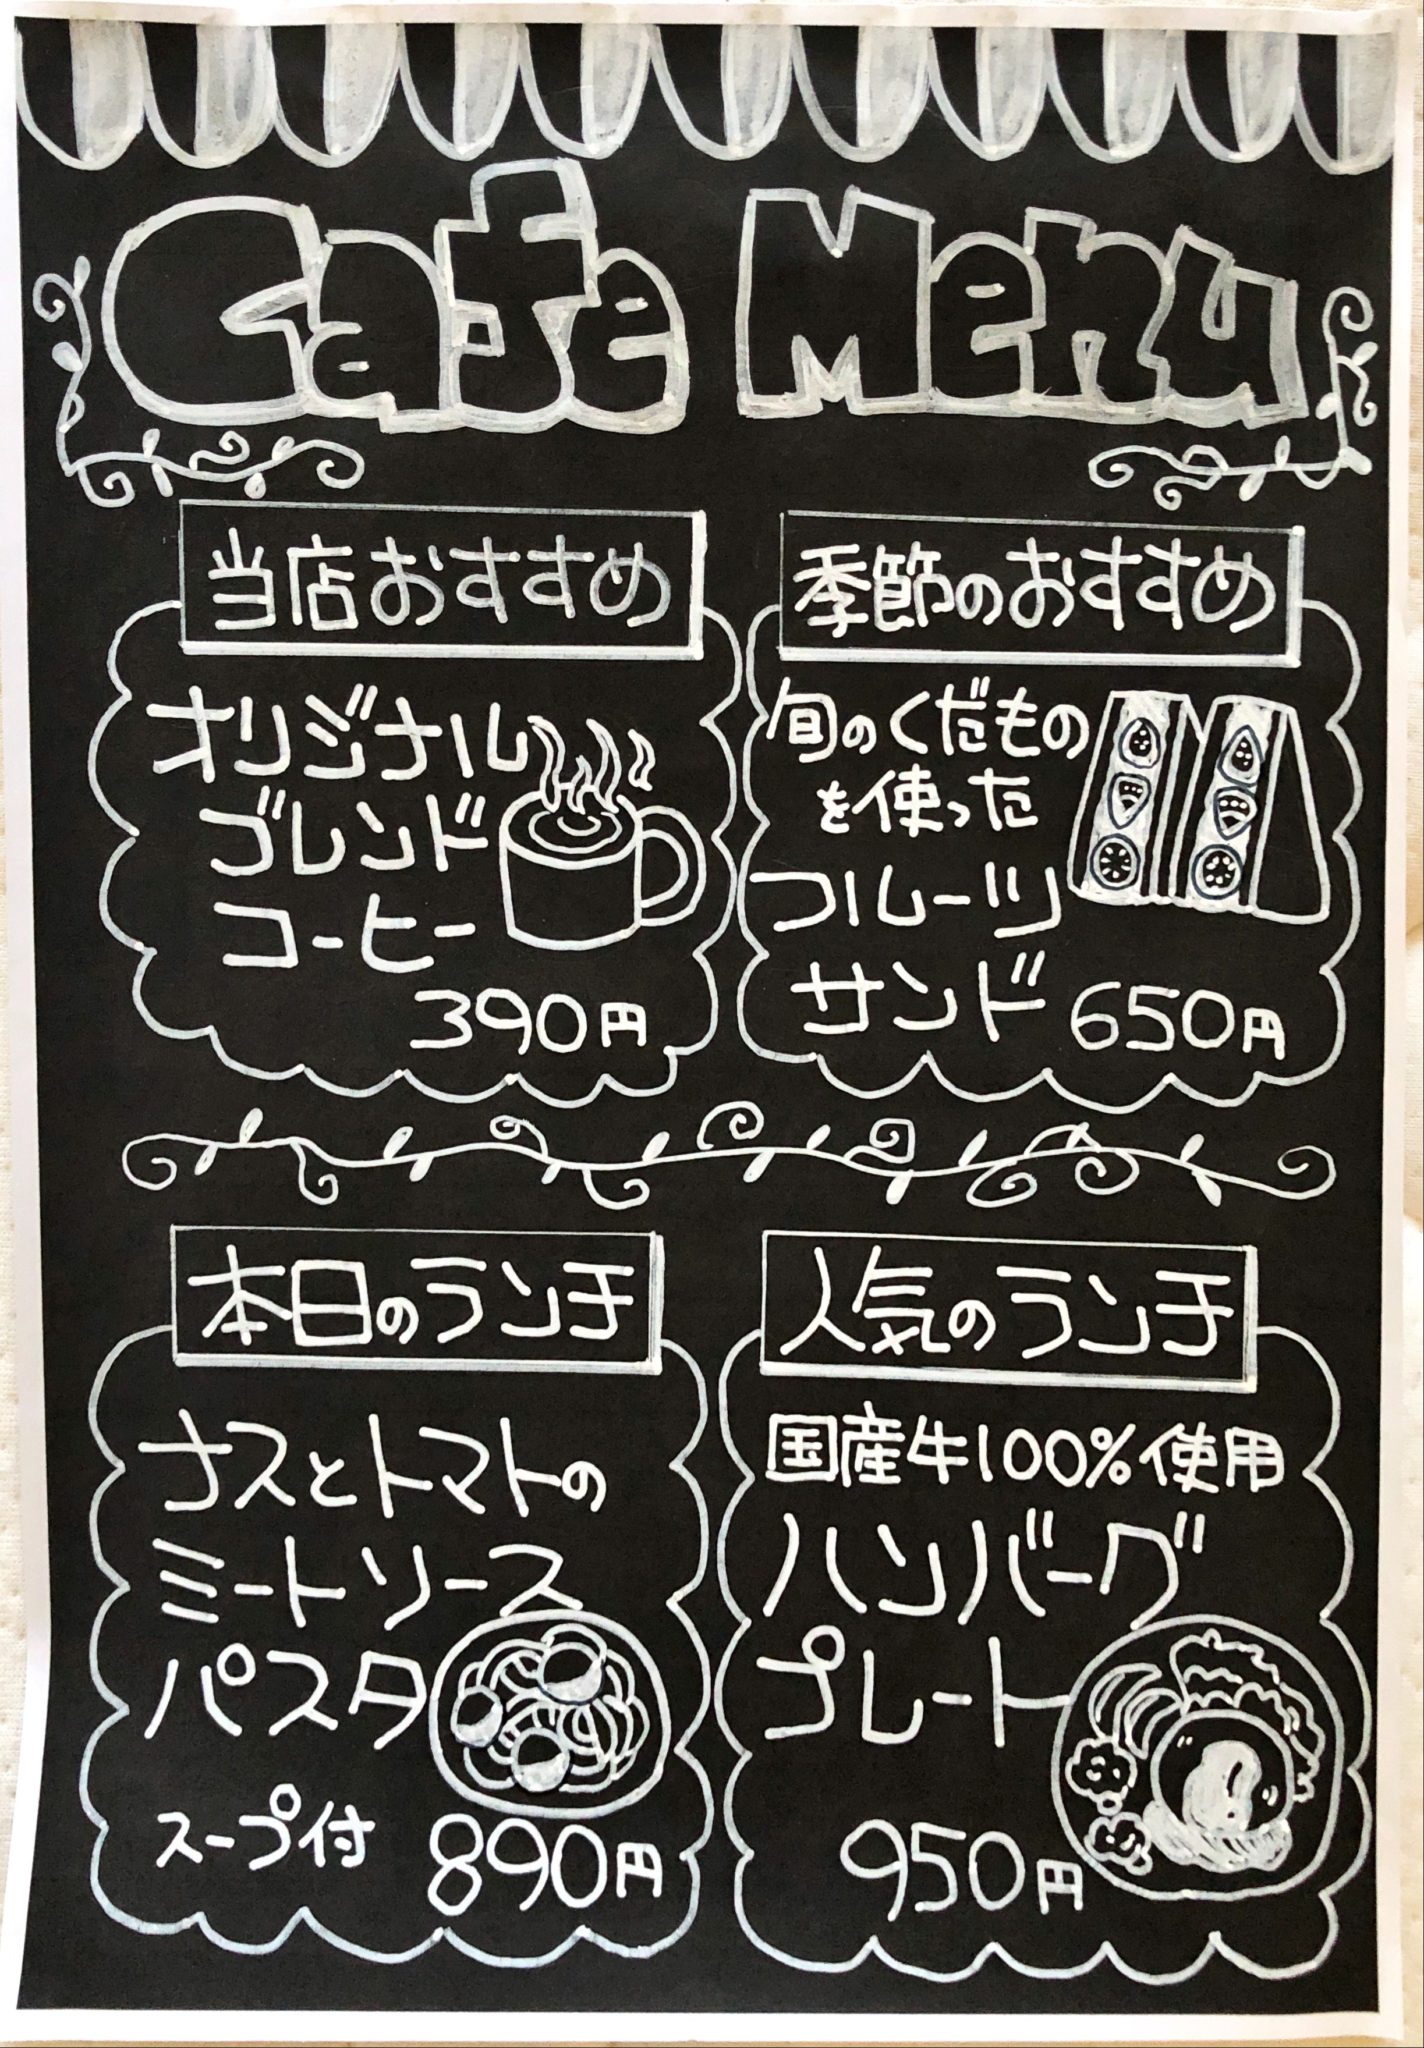 Cafe Menu
当店おすすめ
オリジナル
ブレンド
コーヒー
390円
季節のおすすめ
旬のくだもの
を使った
フルーツ
サンド 650円
本日のランチ
ナスとトマトの
ミートソース
パスタ
スープ付 890円
人気のランチ
国産牛100%使用
ハンバーグ
プレート
950円